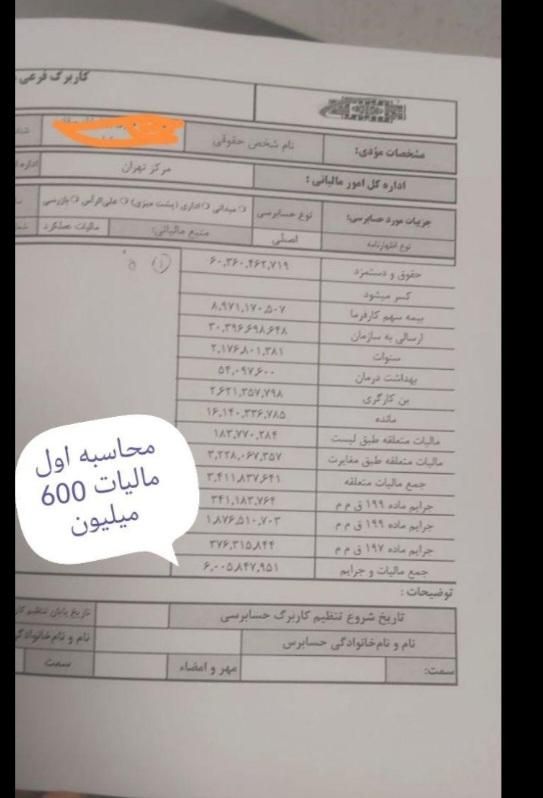 کاربرگ فرعی
مشخصات مؤدی: نام شخص حقوقی
اداره کل امور مالیاتی : مرکز تهران
جزییات مورد حسابرسی: نوع حسابرسی میدانی اداری (پشت میزی) علی‌الرأس بازرسی
نوع اظهارنامه اصلی منبع مالیاتی: مالیات عملکرد
حقوق و دستمزد ۶۰,۳۶۰,۴۶۲,۷۱۹
کسر میشود
بیمه سهم کارفرما ۸,۹۷۱,۱۷۰,۵۰۷
ارسالی به سازمان ۳۰,۳۹۶,۶۹۸,۶۴۸
سنوات ۲,۱۷۶,۸۰۱,۳۸۱
بهداشت درمان ۵۴,۰۹۷,۶۰۰
بن کارگری ۲,۶۲۱,۳۵۷,۷۹۸
مانده ۱۶,۱۴۰,۳۳۶,۷۸۵
مالیات متعلقه طبق لیست ۱۸۳,۷۷۰,۲۸۴
مالیات متعلقه طبق مغایرت ۳,۲۲۸,۰۶۷,۳۵۷
جمع مالیات متعلقه ۳,۴۱۱,۸۳۷,۶۴۱
جرایم ماده ۱۹۹ ق م م ۳۴۱,۱۸۳,۷۶۴
جرایم ماده ۱۹۹ ق م م ۱,۸۷۶,۵۱۰,۷۰۳
جرایم ماده ۱۹۷ ق م م ۳۷۶,۳۱۵,۸۴۴
جمع مالیات و جرایم ۶,۰۰۵,۸۴۷,۹۵۱
محاسبه اول
مالیات 600
میلیون
توضیحات :
تاریخ شروع تنظیم کاربرگ حسابرسی تاریخ پایان تنظیم
نام و نام‌خانوادگی حسابرس نام و نام‌خانوادگی
سمت: مهر و امضاء سمت